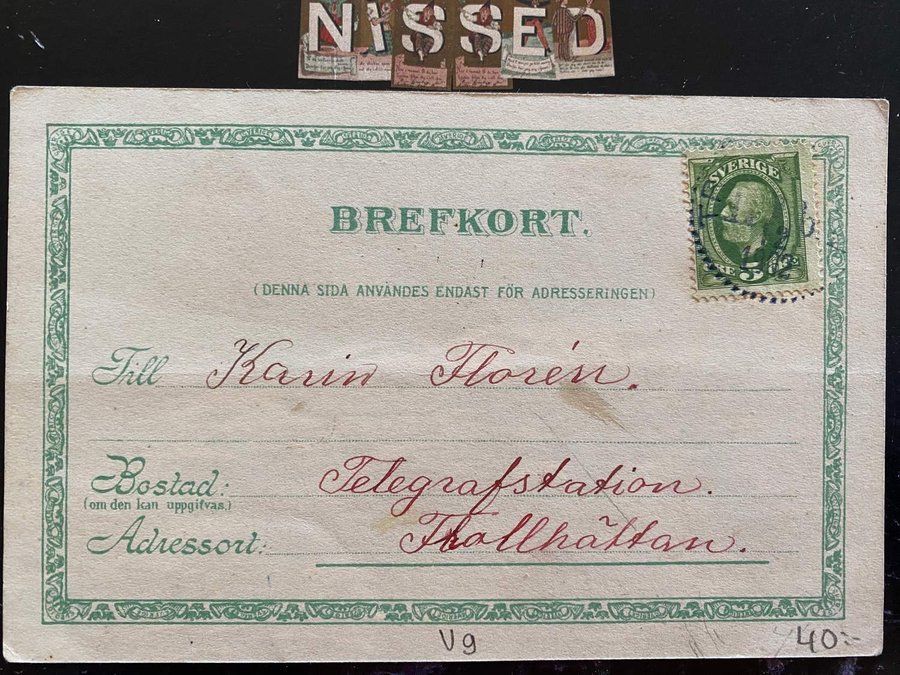 NISSED
BREFKORT.
SVERIGE
5
(DENNA SIDA ANVÄNDES ENDAST FÖR ADRESSERINGEN)
Till Karin Florén.
Bostad: Telegrafstation.
(om den kan uppgifvas.)
Adressort: Trollhättan.
Vg
40:-